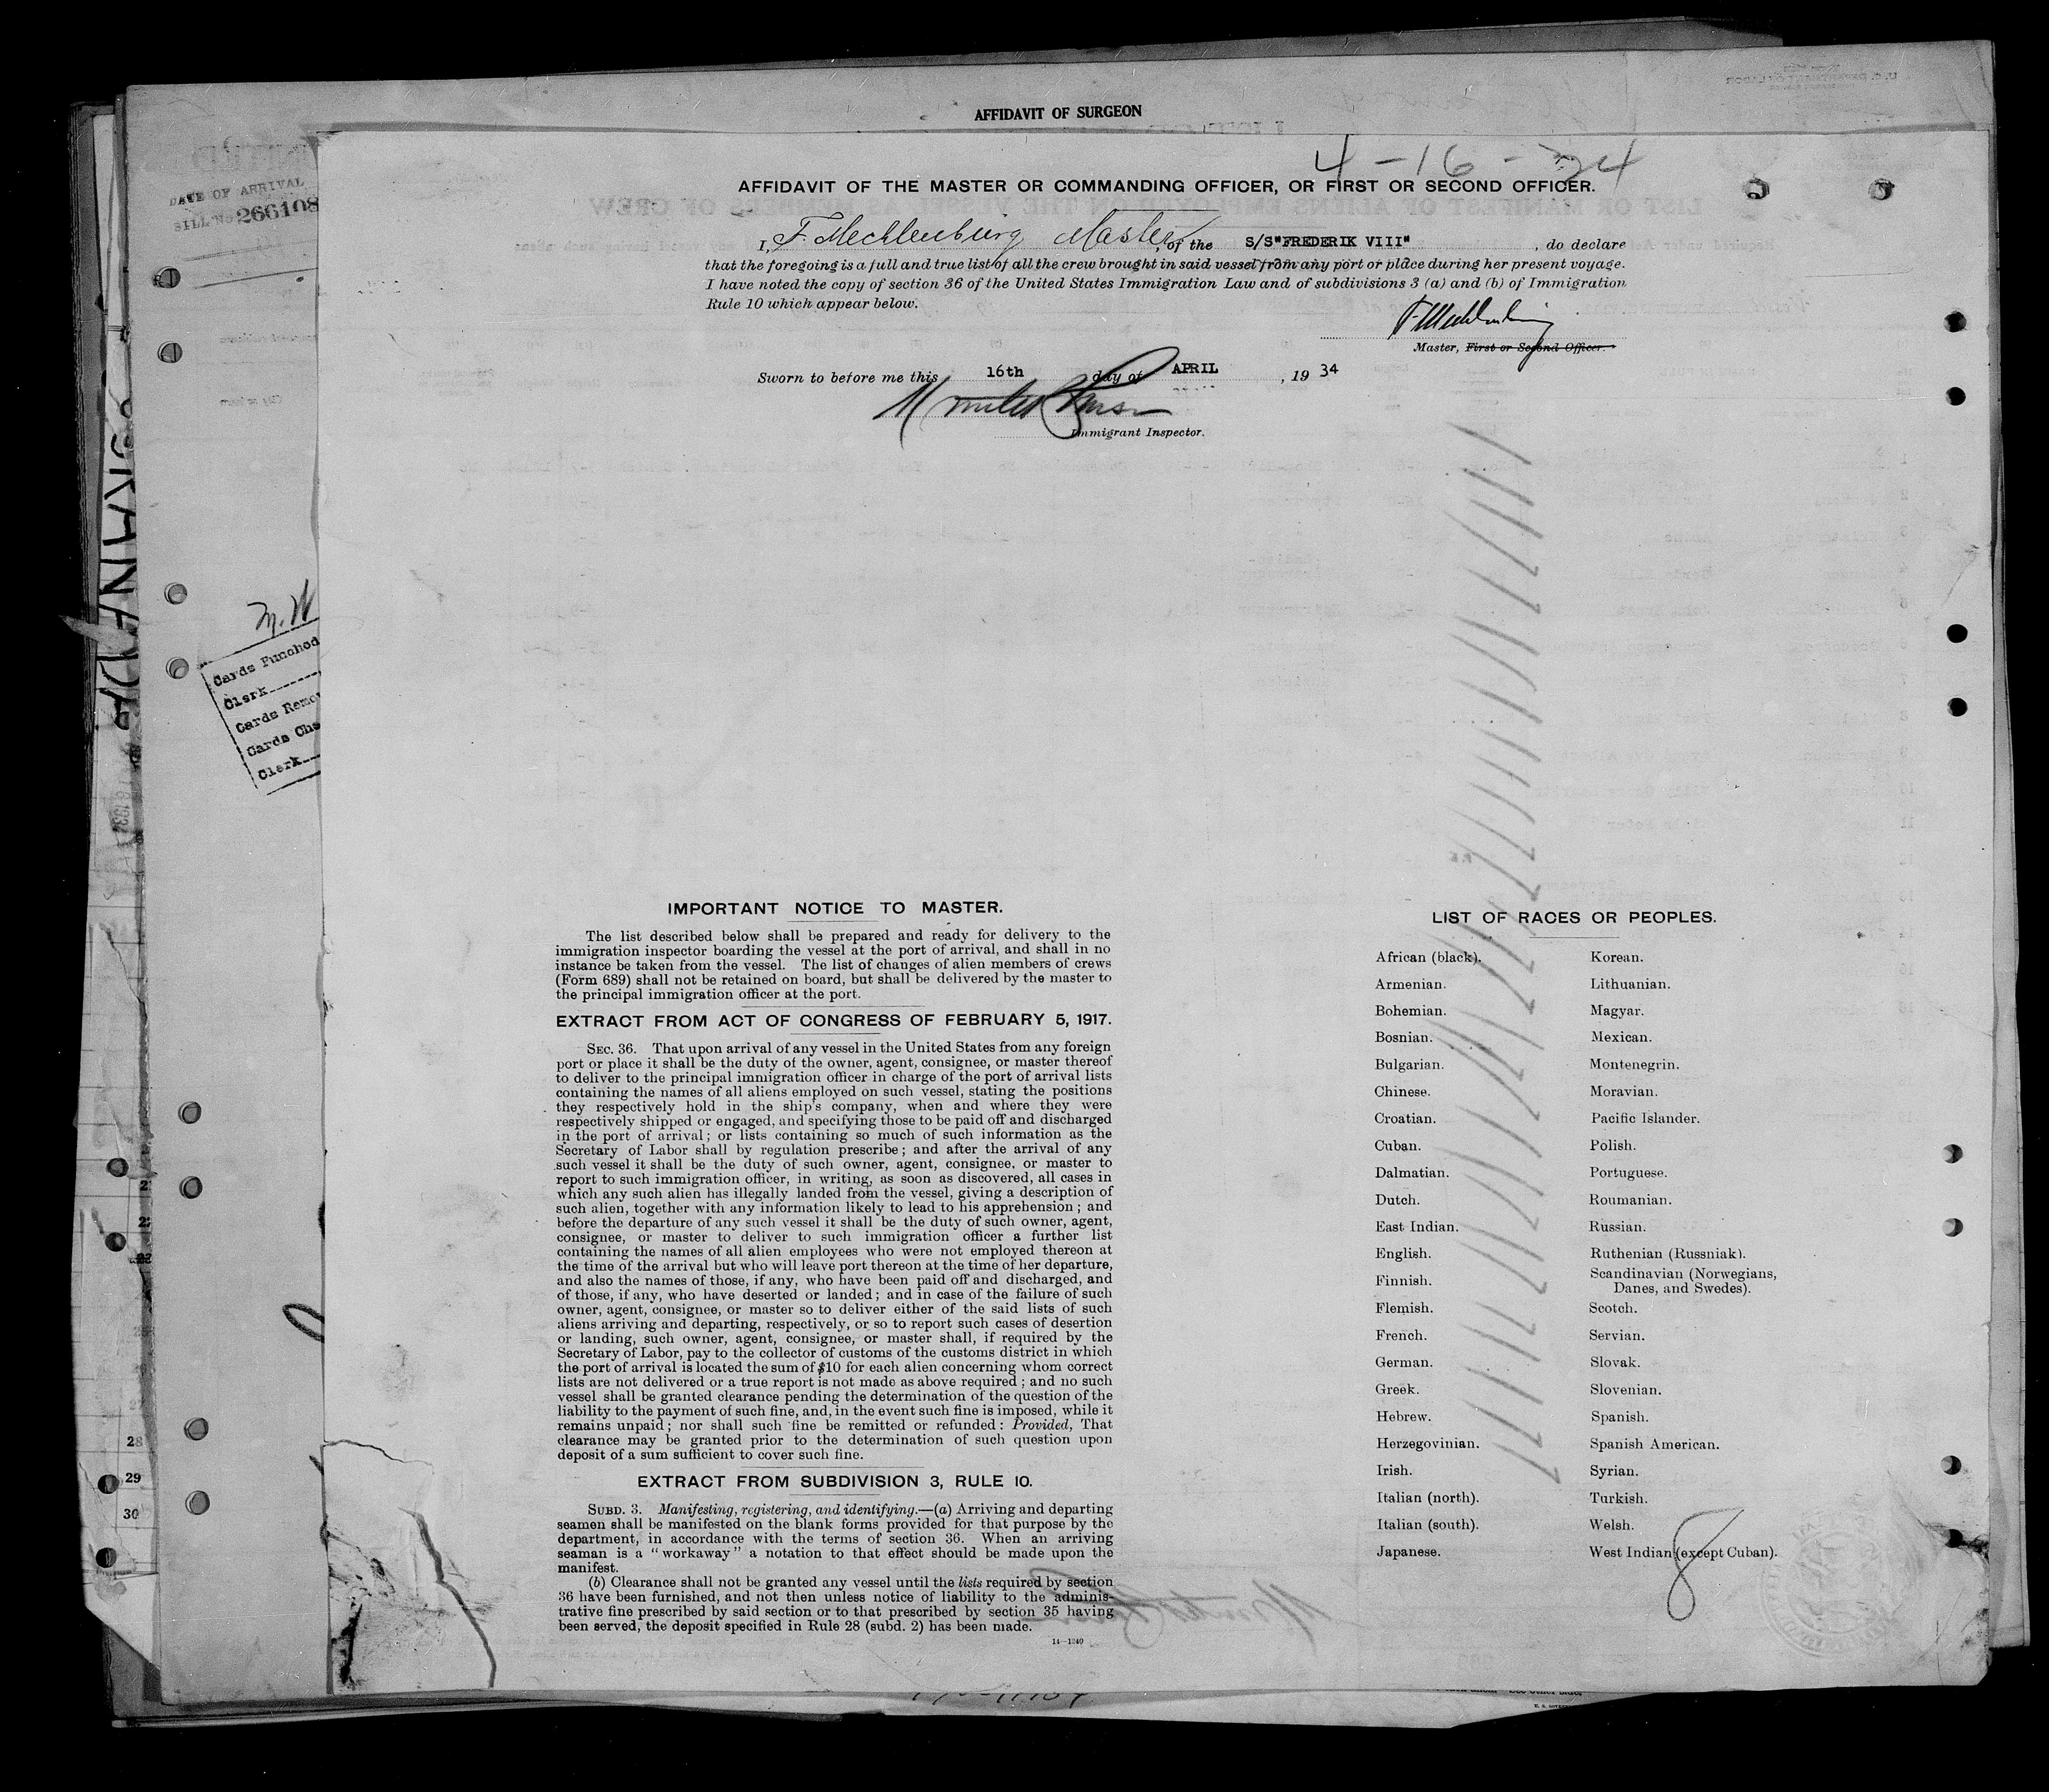 AFFIDAVIT OF SURGEON
4-16-34
AFFIDAVIT OF THE MASTER OR COMMANDING OFFICER, OR FIRST OR SECOND OFFICER.
I, F. Mecklenburg Master, of the S/S"FREDERIK VIII", do declare
that the foregoing is a full and true list of all the crew brought in said vessel from any port or place during her present voyage.
I have noted the copy of section 36 of the United States Immigration Law and of subdivisions 3 (a) and (b) of Immigration
Rule 10 which appear below.
F Mecklenburg
Master, First or Second Officer.
Sworn to before me this 16th day of APRIL, 19 34
Immigrant Inspector.
DATE OF ARRIVAL
BILL No 266108
M. W
Cards Punched
Clerk
Cards Remo
Cards Che
Clerk
28
29
30
IMPORTANT NOTICE TO MASTER.
The list described below shall be prepared and ready for delivery to the
immigration inspector boarding the vessel at the port of arrival, and shall in no
instance be taken from the vessel. The list of changes of alien members of crews
(Form 689) shall not be retained on board, but shall be delivered by the master to
the principal immigration officer at the port.
EXTRACT FROM ACT OF CONGRESS OF FEBRUARY 5, 1917.
SEC. 36. That upon arrival of any vessel in the United States from any foreign
port or place it shall be the duty of the owner, agent, consignee, or master thereof
to deliver to the principal immigration officer in charge of the port of arrival lists
containing the names of all aliens employed on such vessel, stating the positions
they respectively hold in the ship's company, when and where they were
respectively shipped or engaged, and specifying those to be paid off and discharged
in the port of arrival; or lists containing so much of such information as the
Secretary of Labor shall by regulation prescribe; and after the arrival of any
such vessel it shall be the duty of such owner, agent, consignee, or master to
report to such immigration officer, in writing, as soon as discovered, all cases in
which any such alien has illegally landed from the vessel, giving a description of
such alien, together with any information likely to lead to his apprehension; and
before the departure of any such vessel it shall be the duty of such owner, agent,
consignee, or master to deliver to such immigration officer a further list
containing the names of all alien employees who were not employed thereon at
the time of the arrival but who will leave port thereon at the time of her departure,
and also the names of those, if any, who have been paid off and discharged, and
of those, if any, who have deserted or landed; and in case of the failure of such
owner, agent, consignee, or master so to deliver either of the said lists of such
aliens arriving and departing, respectively, or so to report such cases of desertion
or landing, such owner, agent, consignee, or master shall, if required by the
Secretary of Labor, pay to the collector of customs of the customs district in which
the port of arrival is located the sum of $10 for each alien concerning whom correct
lists are not delivered or a true report is not made as above required; and no such
vessel shall be granted clearance pending the determination of the question of the
liability to the payment of such fine, and, in the event such fine is imposed, while it
remains unpaid; nor shall such fine be remitted or refunded: Provided, That
clearance may be granted prior to the determination of such question upon
deposit of a sum sufficient to cover such fine.
EXTRACT FROM SUBDIVISION 3, RULE 10.
SUBD. 3. Manifesting, registering, and identifying.—(a) Arriving and departing
seamen shall be manifested on the blank forms provided for that purpose by the
department, in accordance with the terms of section 36. When an arriving
seaman is a "workaway" a notation to that effect should be made upon the
manifest.
(b) Clearance shall not be granted any vessel until the lists required by section
36 have been furnished, and not then unless notice of liability to the adminis-
trative fine prescribed by said section or to that prescribed by section 35 having
been served, the deposit specified in Rule 28 (subd. 2) has been made.
14—1240
LIST OF RACES OR PEOPLES.
African (black).
Armenian.
Bohemian.
Bosnian.
Bulgarian.
Chinese.
Croatian.
Cuban.
Dalmatian.
Dutch.
East Indian.
English.
Finnish.
Flemish.
French.
German.
Greek.
Hebrew.
Herzegovinian.
Irish.
Italian (north).
Italian (south).
Japanese.
Korean.
Lithuanian.
Magyar.
Mexican.
Montenegrin.
Moravian.
Pacific Islander.
Polish.
Portuguese.
Roumanian.
Russian.
Ruthenian (Russniak).
Scandinavian (Norwegians,
Danes, and Swedes).
Scotch.
Servian.
Slovak.
Slovenian.
Spanish.
Spanish American.
Syrian.
Turkish.
Welsh.
West Indian (except Cuban).
8